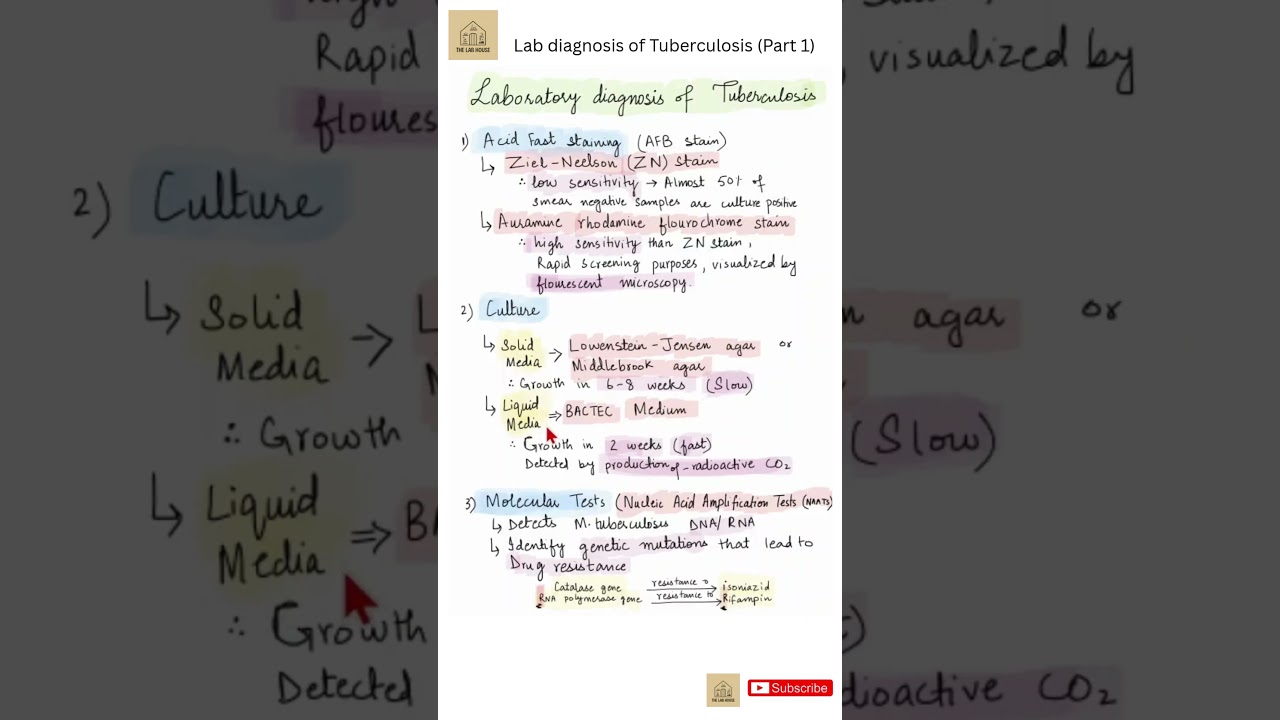 THE LAB HOUSE
Lab diagnosis of Tuberculosis (Part 1)
Laboratory diagnosis of Tuberculosis
1) Acid Fast staining (AFB stain)
↳ Ziel-Neelson (ZN) stain
∴ low sensitivity → Almost 50% of
smear negative samples are culture positive
↳ Auramine rhodamine flourochrome stain
∴ high sensitivity than ZN stain,
Rapid screening purposes, visualized by
flourescent microscopy.
2) Culture
↳ Solid Media → Lowenstein-Jensen agar or
Middlebrook agar
∴ Growth in 6-8 weeks (Slow)
↳ Liquid Media ⇒ BACTEC Medium
∴ Growth in 2 weeks (fast)
Detected by production of-radioactive CO2
3) Molecular Tests (Nucleic Acid Amplification Tests (NAATs)
↳ Detects M.tuberculosis DNA/RNA
↳ Identify genetic mutations that lead to
Drug resistance
Catalase gene resistance to → isoniazid
RNA polymerase gene resistance to → Rifampin
THE LAB HOUSE
Subscribe
Rapid
floures
2) Culture
↳ Solid
Media →
∴ Growth
↳ Liquid
Media ⇒ B
∴ Growth
Detected
, visualized by
agar or
(Slow)
dioactive CO2